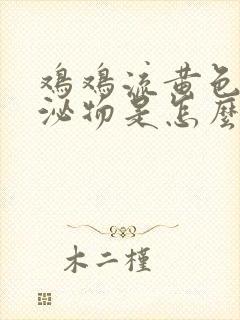 鸡鸡流黄色
泌物是怎麽
木二槿